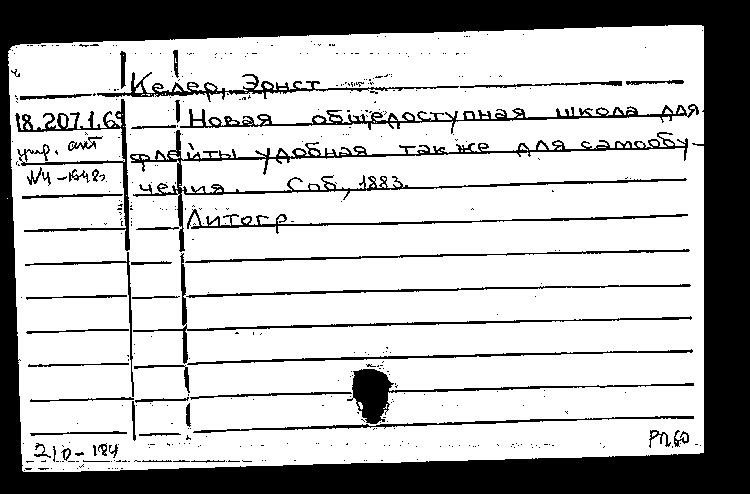 Келер, Эрнст
18.207.1.69
Новая общедоступная школа для
флейты удобная также для самообу-
чения. Соб, 1883.
Литогр.
210-184
РП60